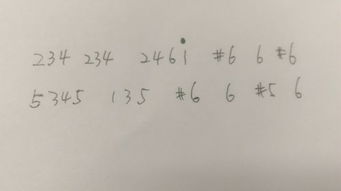 234 234 246i #6 6 #6
5345 135 #6 6 #5 6